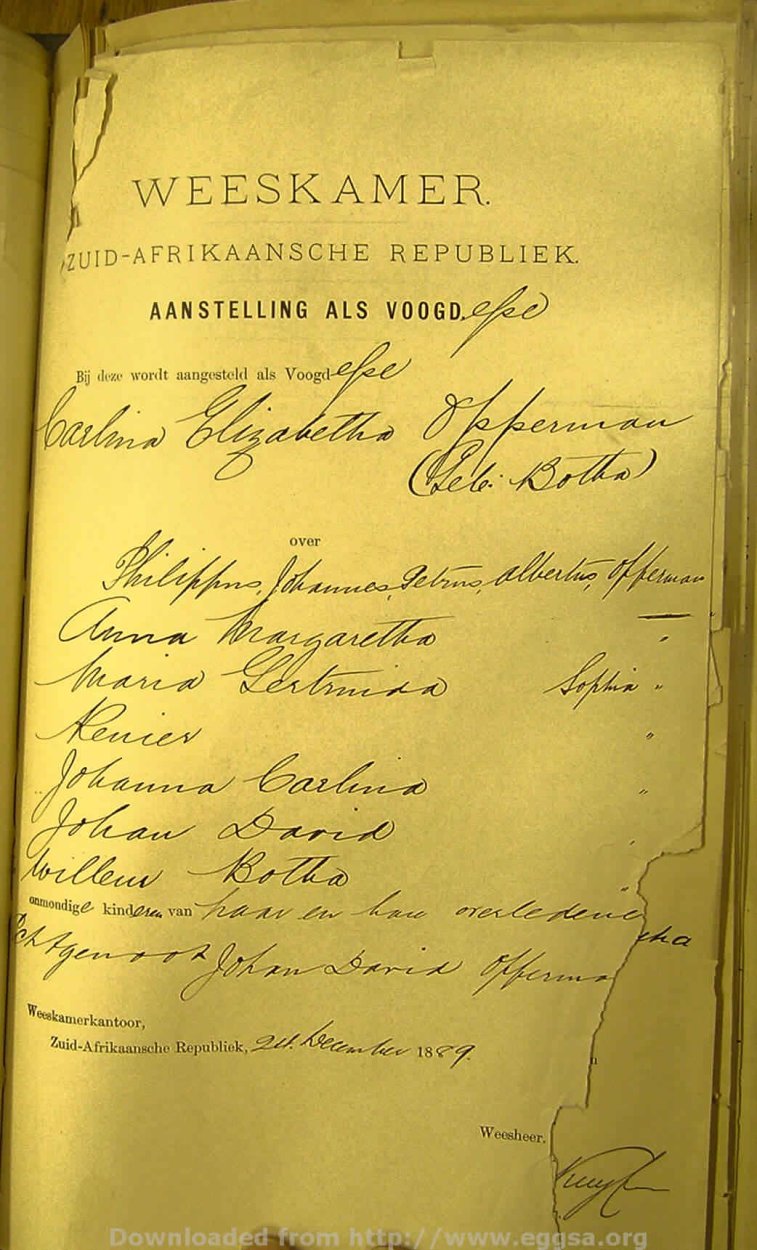 WEESKAMER.
ZUID-AFRIKAANSCHE REPUBLIEK.
AANSTELLING ALS VOOGD.esse
Bij deze wordt aangesteld als Voogd-esse
Carlina Elizabetha Opperman
(Geb: Botha)
over
Philippus, Johannes, Petrus, Albertus, Opperman
Anna Margaretha "
Maria Gertruida Sophia "
Renier "
Johanna Carlina "
Johan David "
Willem Botha "
onmondige kinderen van haar en haar overledene
Echtgenoot Johan David Opperma
Weeskamerkantoor,
Zuid-Afrikaansche Republiek, December 1889.
Weesheer.
Downloaded from http://www.eggsa.org